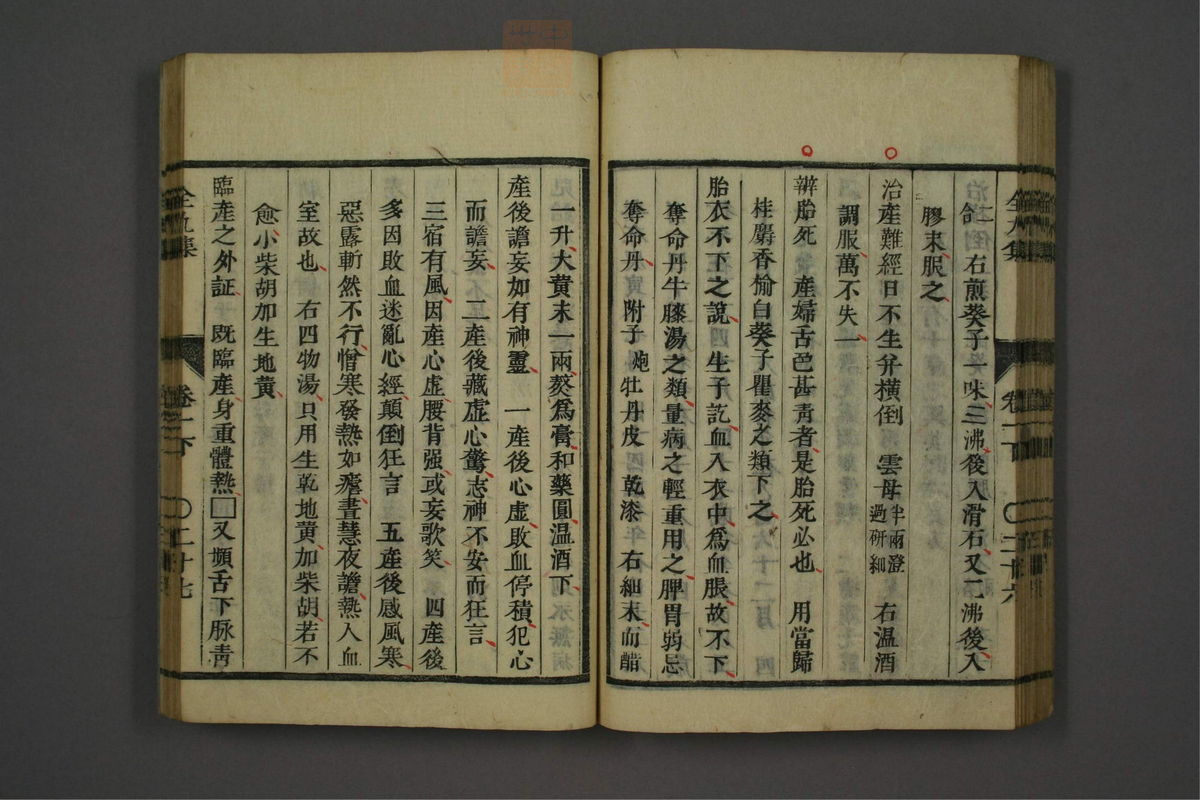 飮右煎葵子一味三沸後入滑石又二沸後入
膠末服之
治產難經日不生并橫倒 雲母半兩澄過研細 右温酒
調服萬不失一
辨胎死 產婦舌色甚靑者是胎死必也 用當歸
桂麝香榆白葵子瞿麥之類下之
胎衣不下之說 生子訖血入衣中爲血脹故不下
奪命丹牛膝湯之類量病之輕重用之脾胃弱忌
奪命丹 附子炮 牡丹皮 乾漆 右細末而醋
全九集 卷一下 〇二十六
一升大黃末一兩葵爲膏和藥圓温酒下
產後譫妄如有神靈 一產後心虛敗血停積犯心
而譫妄 二產後藏虛心驚志神不安而狂言
三宿有風因產心虛腰背强或妄歌笑 四產後
多因敗血迷亂心經顚倒狂言 五產後感風寒
惡露斬然不行憎寒發熱如瘧晝慧夜譫熱入血
室故也 右四物湯只用生乾地黃加柴胡若不
愈小柴胡加生地黃
臨產之外証 既臨產身重體熱□又頻舌下脉靑
全九集 卷一下 〇二十七